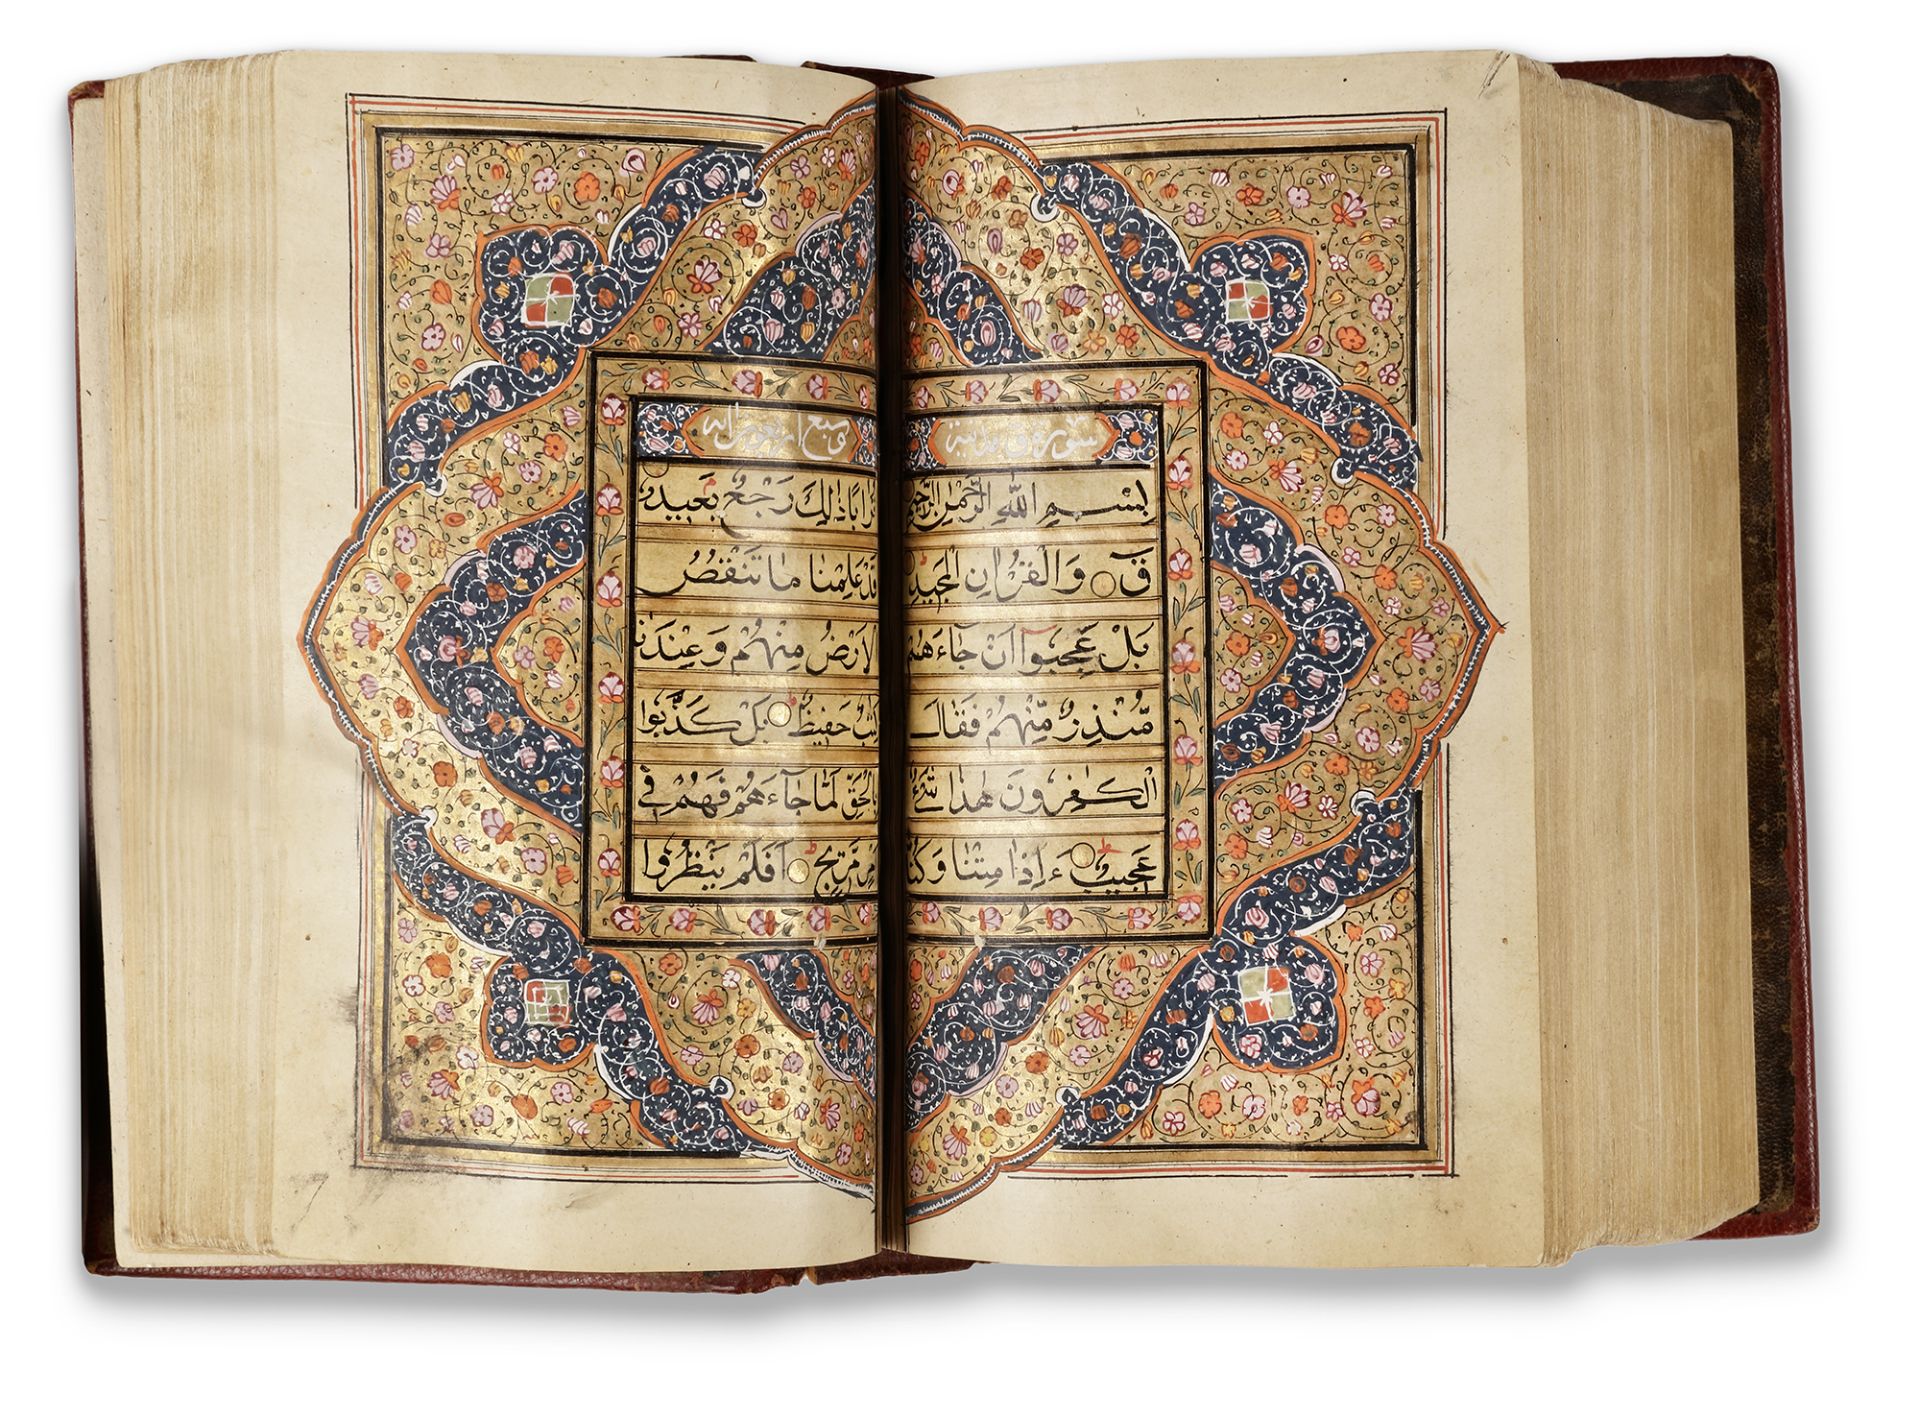 سورة ق مدنية
بِسْمِ اللهِ الرَّحْمٰنِ الرَّحِيْمِ
قٓ وَالْقُرْاٰنِ الْمَجِيْدِ
بَلْ عَجِبُوْٓا اَنْ جَآءَهُمْ
مُّنْذِرٌ مِّنْهُمْ فَقَالَ
الْكٰفِرُوْنَ هٰذَا شَيْءٌ
عَجِيْبٌ ءَاِذَا مِتْنَا وَكُنَّا
وسبع اربعون ايه
تُرَابًا ذٰلِكَ رَجْعٌ بَعِيْدٌ
قَدْ عَلِمْنَا مَا تَنْقُصُ
الْاَرْضُ مِنْهُمْ وَعِنْدَنَا
كِتٰبٌ حَفِيْظٌ بَلْ كَذَّبُوْا
بِالْحَقِّ لَمَّا جَآءَهُمْ فَهُمْ فِيْ
اَمْرٍ مَّرِيْجٍ اَفَلَمْ يَنْظُرُوْا